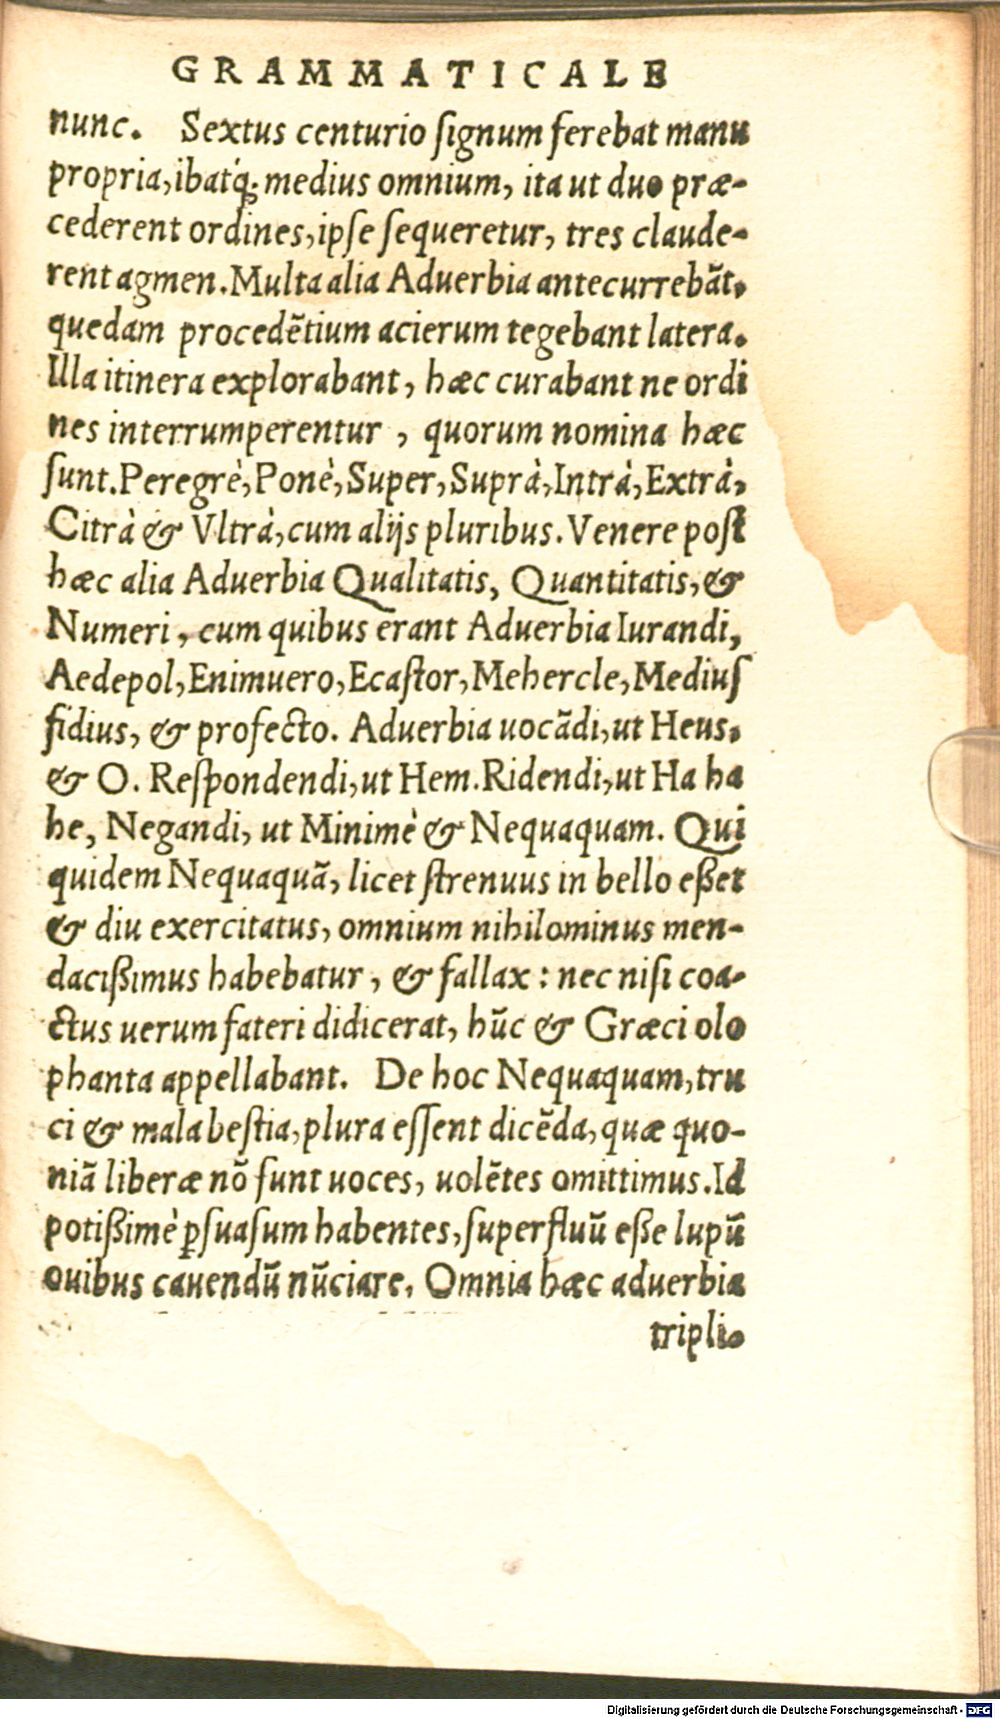 GRAMMATICALE
nunc. Sextus centurio ſignum ferebat manu
propria, ibatq́; medius omnium, ita ut duo præ-
cederent ordines, ipſe ſequeretur, tres claude-
rent agmen. Multa alia Aduerbia antecurrebãt.
quedam procedẽtium acierum tegebant latera.
Illa itinera explorabant, hæc curabant ne ordi
nes interrumperentur, quorum nomina hæc
ſunt. Peregrè, Ponè, Super, Suprà, Intrà, Extrà,
Citrà & Vltrà, cum alijs pluribus. Venere poſt
hæc alia Aduerbia Qualitatis, Quantitatis, &
Numeri, cum quibus erant Aduerbia Iurandi,
Aedepol, Enimuero, Ecaſtor, Mehercle, Mediuſ
fidius, & profecto. Aduerbia uocãdi, ut Heus.
& O. Reſpondendi, ut Hem. Ridendi, ut Ha ha
he, Negandi, ut Minimè & Nequaquam. Qui
quidem Nequaquã, licet ſtrenuus in bello eßet
& diu exercitatus, omnium nihilominus men-
dacißimus habebatur, & fallax: nec niſi coa-
ctus uerum fateri didicerat, hũc & Græci olo
phanta appellabant. De hoc Nequaquam, tru
ci & mala beſtia, plura eſſent dicẽda, quæ quo-
niã liberæ nõ ſunt uoces, uolẽtes omittimus. Id
potißimè ꝑſuaſum habentes, ſuperfluũ eße lupũ
ouibus cauendũ nũciare. Omnia hæc aduerbia
tripli-
Digitalisierung gefördert durch die Deutsche Forschungsgemeinschaft - DFG